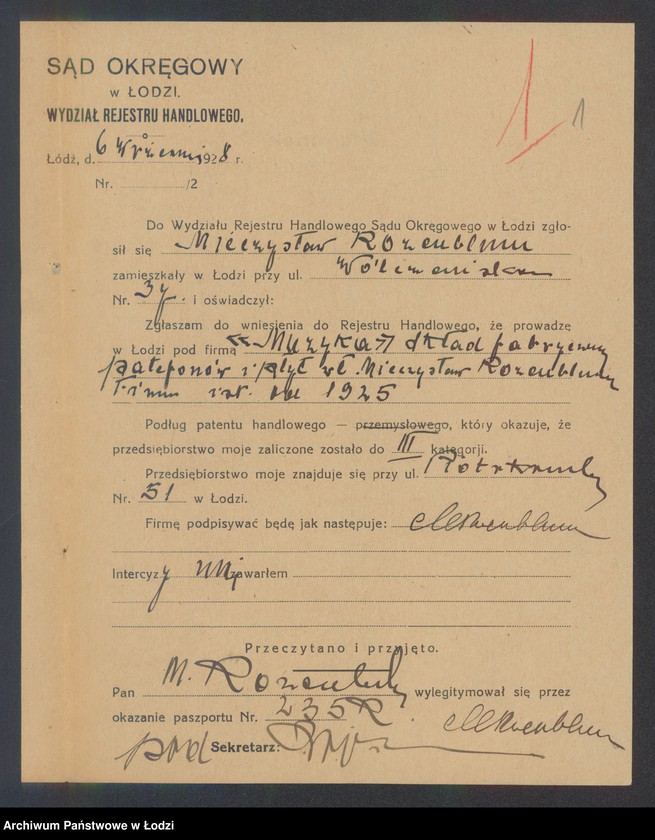 SĄD OKRĘGOWY
w ŁODZI.
WYDZIAŁ REJESTRU HANDLOWEGO.
1 1
Łódź, d. 6 Wrześni 1928 r.
Nr. /2
Do Wydziału Rejestru Handlowego Sądu Okręgowego w Łodzi zgło-
sił się Mieczysław Rozenblum
zamieszkały w Łodzi przy ul. Wólczańska
Nr. 37. i oświadczył:
Zgłaszam do wniesienia do Rejestru Handlowego, że prowadzę
w Łodzi pod firmą «Muzyka» skład fabryczny
patefonów i płyt wł. Mieczysław Rozenblum
Firma ist. od 1925
Podług patentu handlowego — przemysłowego, który okazuje, że
przedsiębiorstwo moje zaliczone zostało do III kategorji.
Przedsiębiorstwo moje znajduje się przy ul. Piotrkowskiej
Nr. 51 w Łodzi.
Firmę podpisywać będę jak następuje: MRozenblum
Intercyzy nie zawarłem
Przeczytano i przyjęto.
Pan M. Rozenblum wylegitymował się przez
okazanie paszportu Nr. 235R MRozenblum
pod Sekretarz:
Archiwum Państwowe w Łodzi